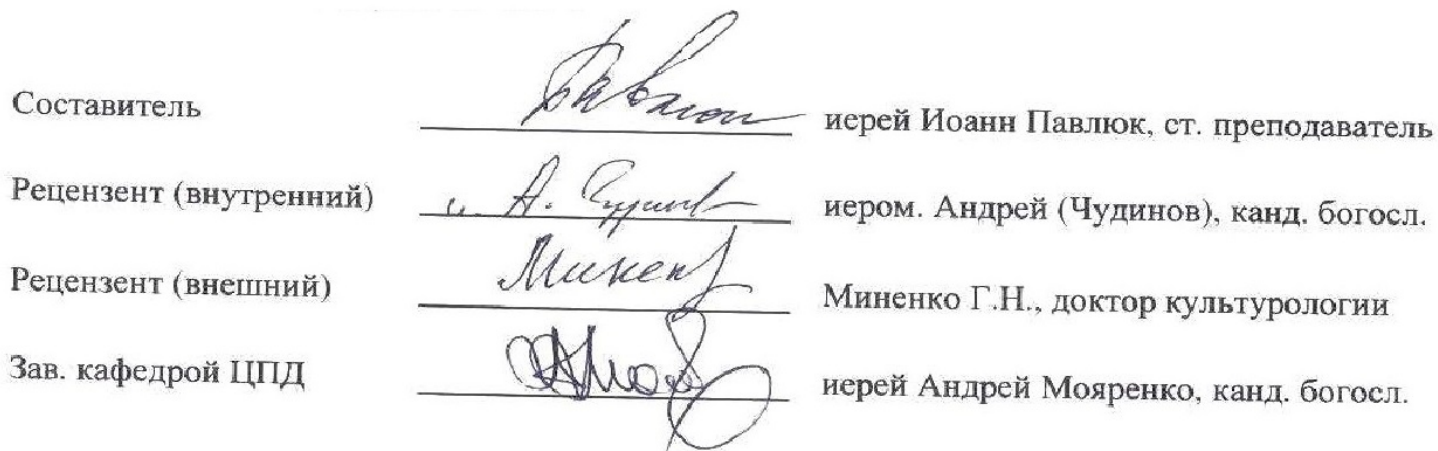 Составитель иерей Иоанн Павлюк, ст. преподаватель
Рецензент (внутренний) и. А. иером. Андрей (Чудинов), канд. богосл.
Рецензент (внешний) Миненко Г.Н., доктор культурологии
Зав. кафедрой ЦПД иерей Андрей Мояренко, канд. богосл.